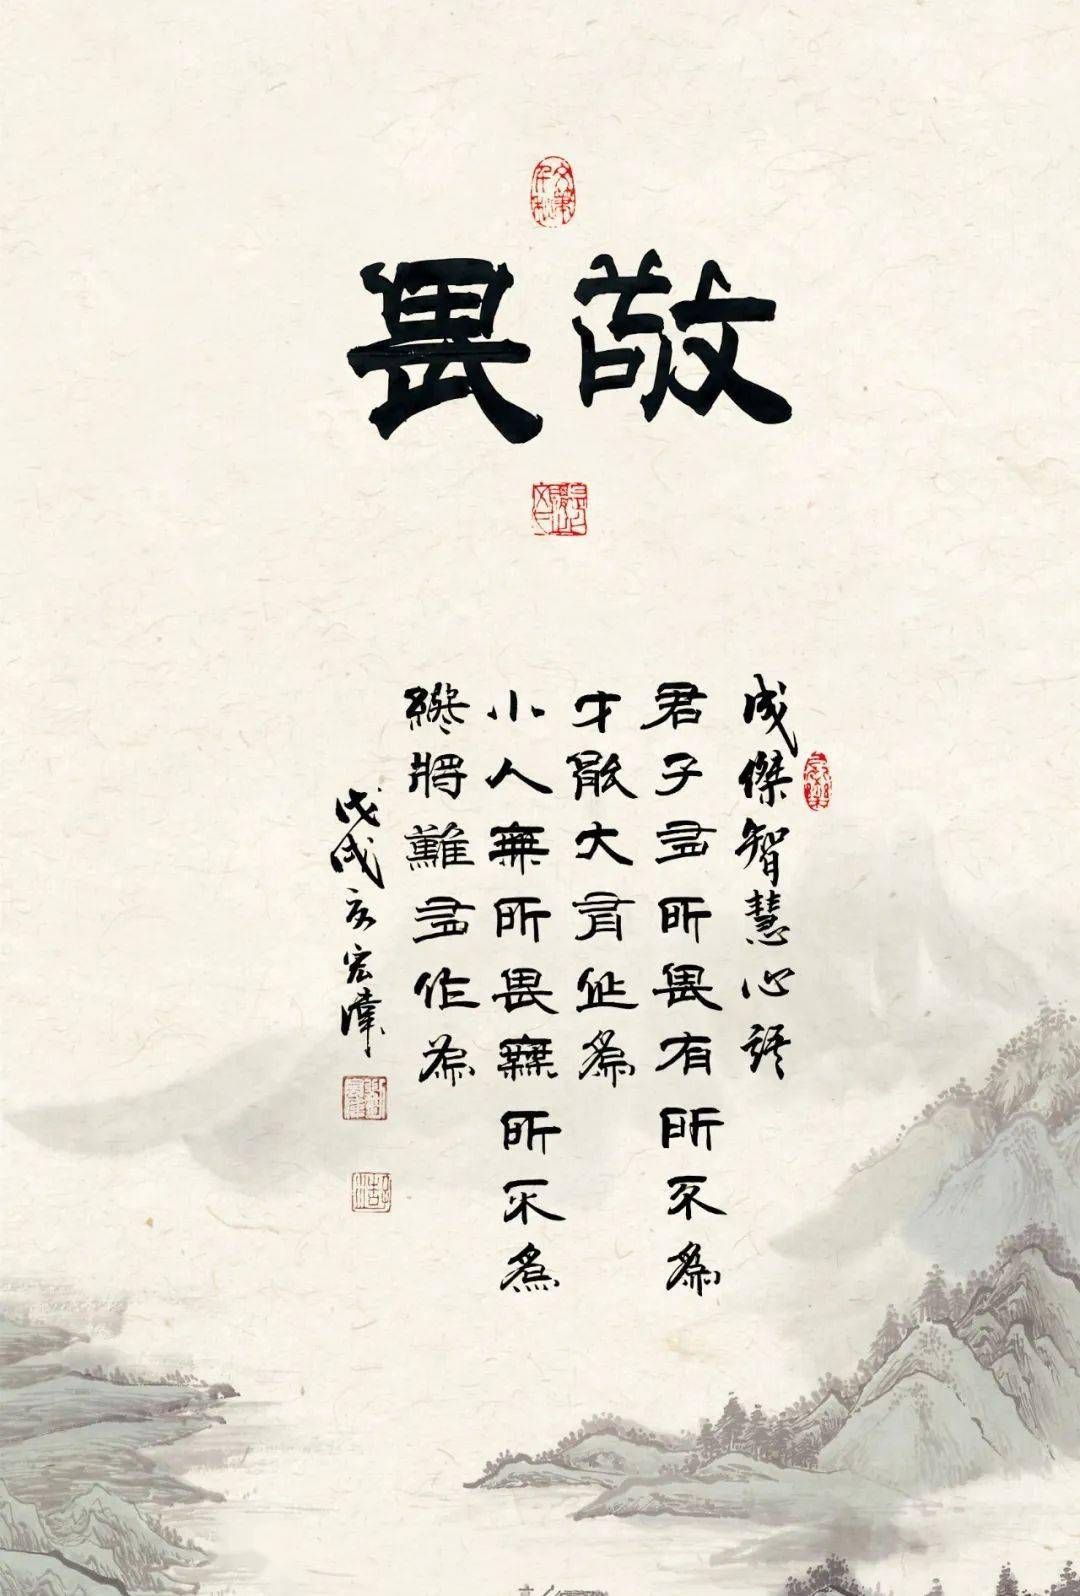 敬畏
成傑智慧心語
君子有所畏有所不為
才能大有作為
小人無所畏無所不為
終將難有作為
戊戌亥宏偉